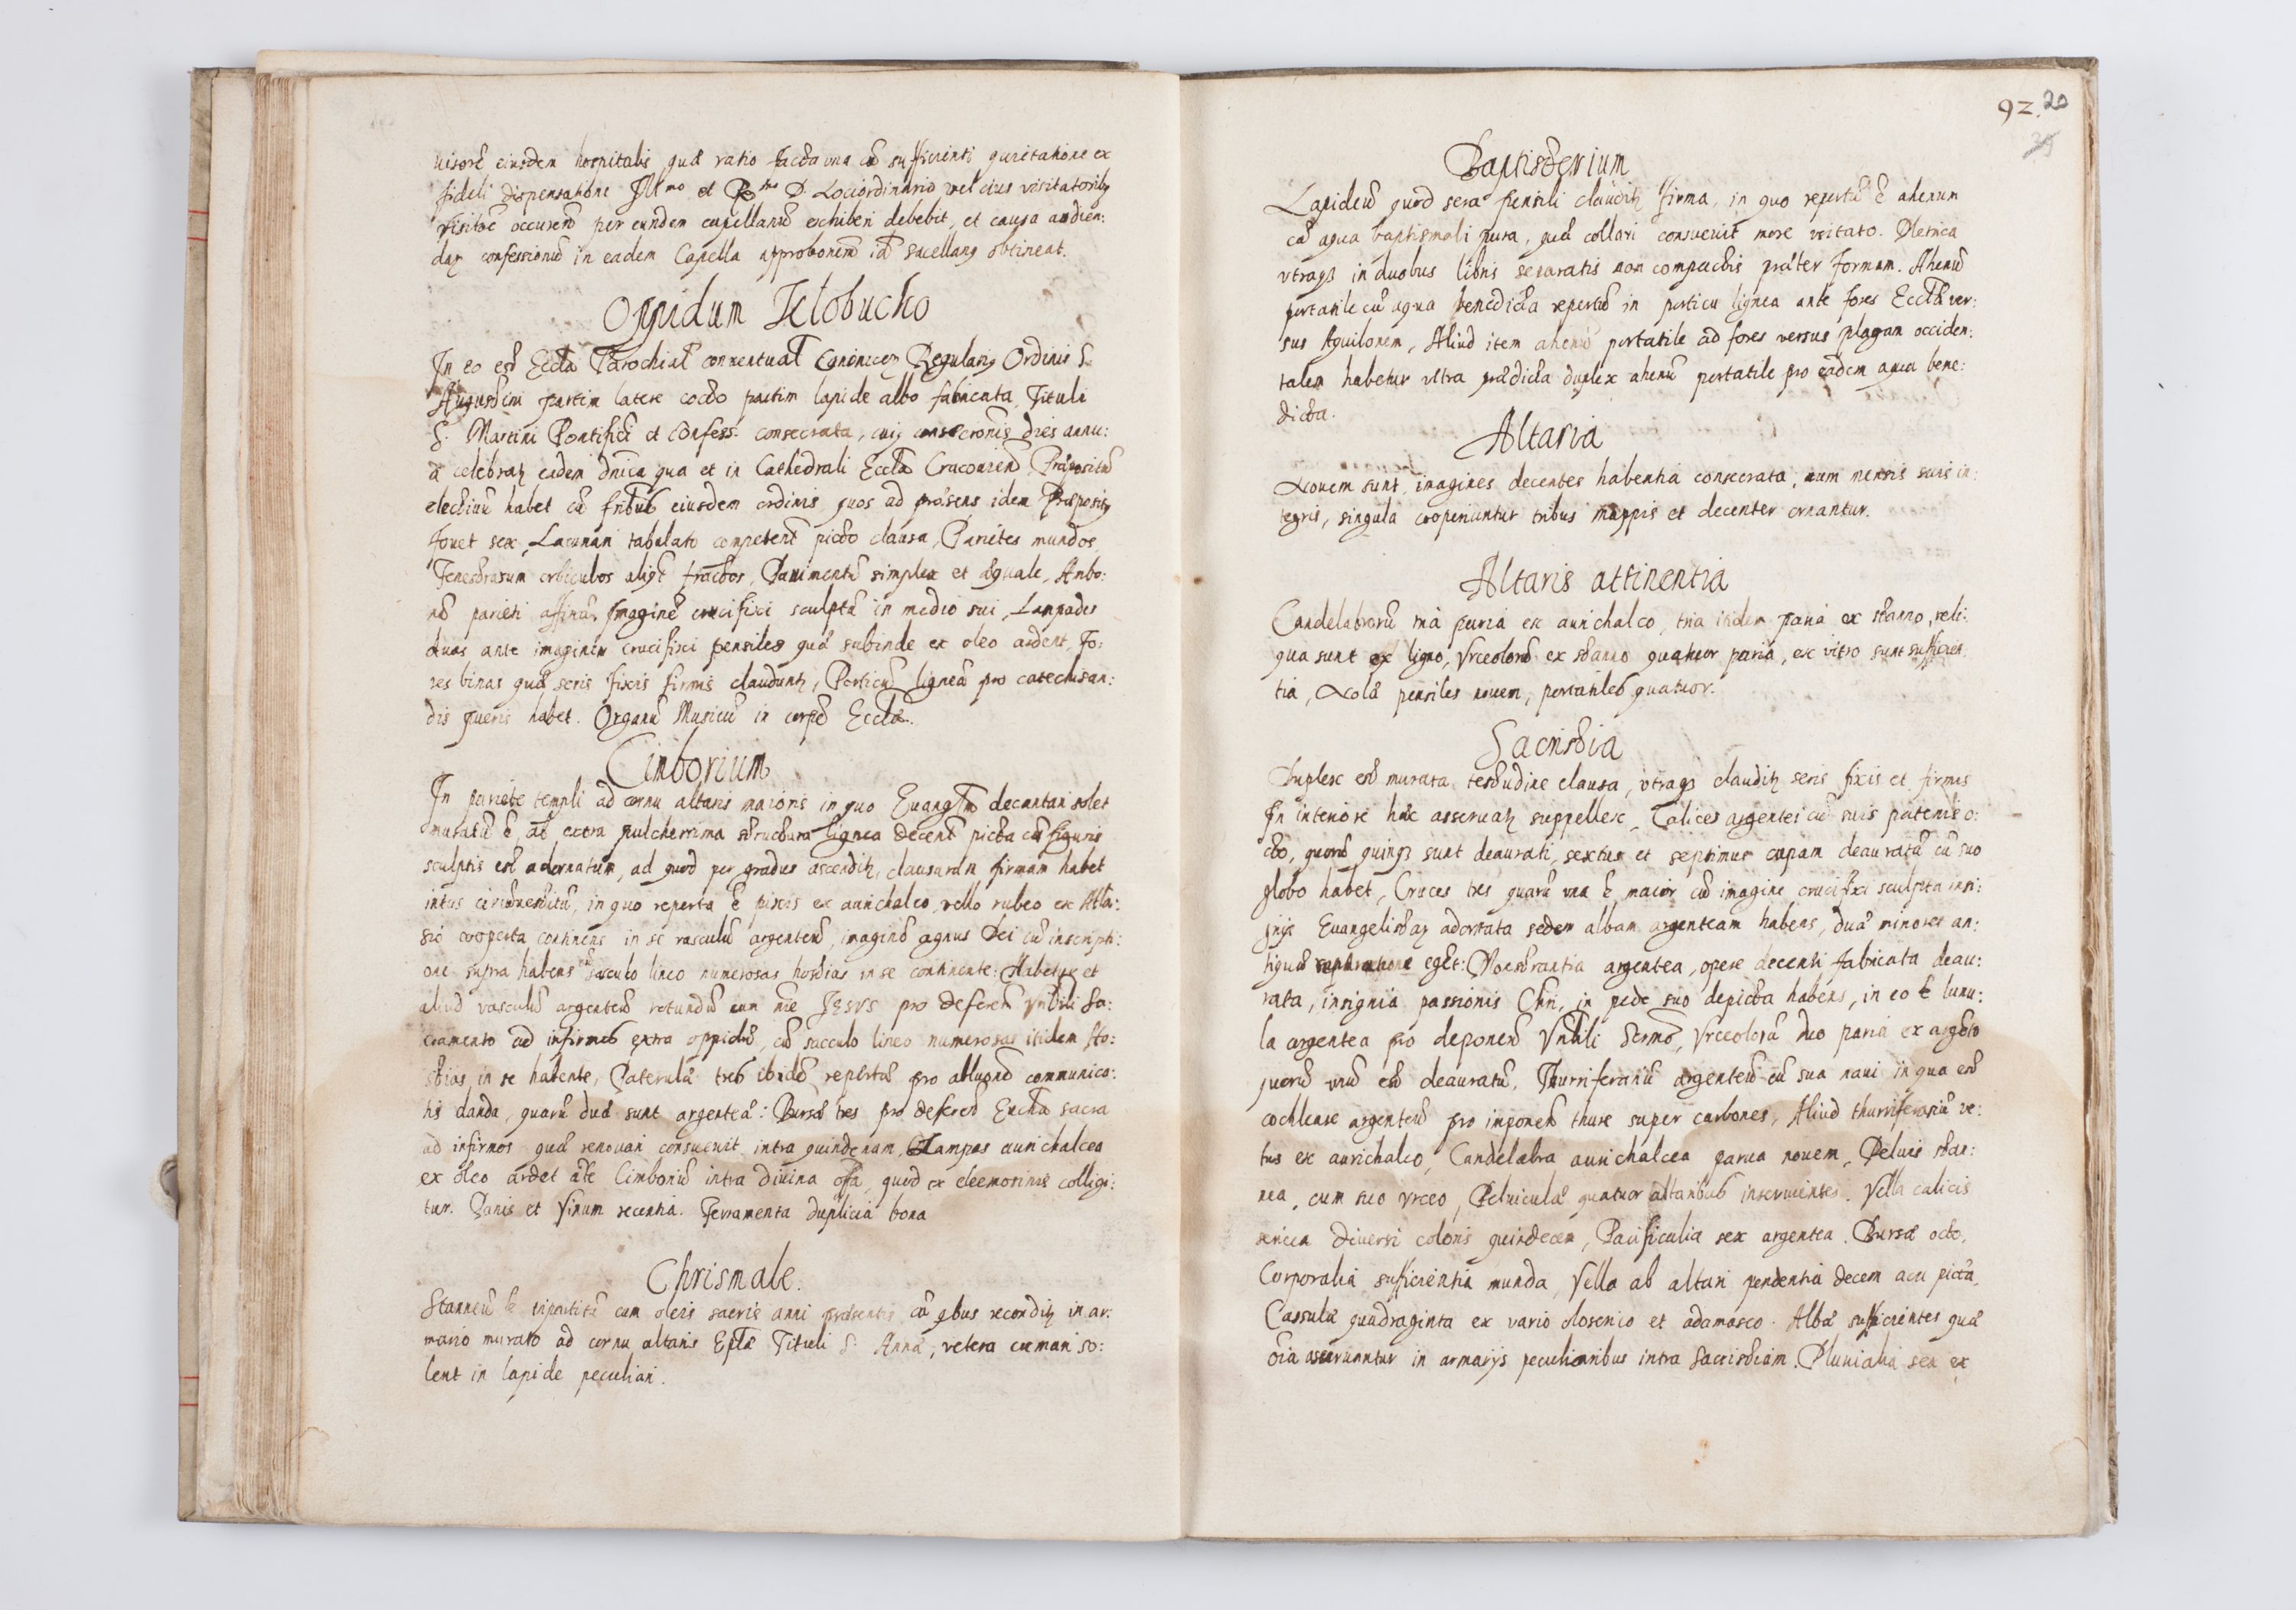 uisorē eiusdem hospitalis quā ratio facta una cū sufficienti quietatione ex
fideli dispensatione Illmo et Rmo D. Lociordinario vel eius visitatoribꝫ
visitōe occurrē per eundem capellanū exhiberi debebit, et causa audien:
daꝝ confessionū in eadem Capella approbonem is sacellanꝯ obtineat.
Oppidum Klobucko
In eo est Eccla Parochial conuentual Canonicoꝝ Regulariū Ordinis S.
Augustini partim latere cocto partim lapide albo fabricata, Tituli
S. Martini Pontificis et Confess: consecrata, cuiꝯ consecronis dies annu:
a celebraꝭ eadem dnica qua et in Cathedrali Eccla Cracouien, Præpositū
electiuū habet cū fribus eiusdem ordinis quos ad præsens idem Præpositꝯ
fouet sex, Lacunari tabulato competent picto clausa, Parietes mundos,
Fenestrarum orbiculos aliqt fractos, Pauimentū simplex et æquale, Ambo:
nē parieti affixū, Imaginē crucifixi sculptā in medio sui, Lampades
duas ante imaginem crucifixi pensiles quæ subinde ex oleo ardent, Fo:
res binas quæ seris fixis firmis clauduntꝭ, Porticū ligneā pro catechisan:
dis pueris habet. Organū Musicū in corpe Ecclæ.
Cimborium
In pariete templi ad cornu altaris maioris in quo Euangm decantari solet
muratū ē, ab extra pulcherrima structura lignea decent picta cū figuris
sculptis est adornatum, ad quod per gradus ascendiꝭ, clausuram firmam habet
intus circūuestitū, in quo reperta ē pixis ex aurichalco, vello rubeo ex Atla:
sio cooperta continens in se vasculū argenteū, imaginē agnus Dei cū inscripti:
one supra habens cū sacculo lineo numerosas hostias in se continente: Habetur et
aliud vasculū argenteū rotundū cum nōe JESVS pro deferen Vnbili Sa:
cramento ad infirmos extra oppidū, cū sacculo lineo numerosas itidem Ho:
stias in se habente, Paterulæ tres ibidē repertæ pro abluone communica:
tis danda, quarū duæ sunt argenteæ: Bursæ tres pro deferen Eucha sacra
ad infirmos quæ renouari consueuit intra quindenam, Lampas aurichalcea
ex oleo ardet ate Cimboriū intra diuina offa, quod ex eleemosinis colligi:
tur. Panis et Vinum recentia. Ferramenta duplicia bona
Chrismale.
Stanneū ē tripartitū cum oleis sacris anni præsentis, cū qbus recondiꝭ in ar:
mario murato ad cornu altaris Eplæ Tituli S: Annæ, vetera cremari so:
lent in lapide peculiari.
92. 20
Baptisterium
Lapideū quod sera pensili claudiꝭ firma, in quo repertū ē ahenum
cū aqua baptismali pura, quæ collari consueuit more vsitato. Metrica
vtraqꝫ in duobus libris separatis non compactis præter formam. Ahenū
portatile cū aqua benedicta repertū in porticu lignea ante fores Ecclæ ver:
sus Aquilonem, Aliud item ahenū portatile ad fores versus plagam occiden:
talem habetur vltra prædicta duplex ahenū portatile pro eadem aqua bene:
dicta.
Altaria
Nouem sunt, imagines decentes habentia consecrata, cum mensis suis in:
tegris, singula cooperiuntur tribus mappis et decenter ornantur.
Altaris attinentia
Candelabrorū tria paria ex aurichalco, tria itidem paria ex stanno, reli:
qua sunt ex ligno, Vrceolorū ex stanno quatuor paria, ex vitro sunt sufficien:
tia, Nolæ pensiles nouem, portatiles quatuor.
Sacristia
Duplex est murata testudine clausa, vtraqꝫ claudiꝭ seris fixis et firmis
In interiore hæc asseruaꝭ suppellex, Calices argentei cū suis patenis o:
cto, quorū quinqꝫ sunt deaurati, sextus et septimus cupam deauratā cū suo
globo habet, Cruces tres quarū vna ē maior cū imagine crucifixi sculpta insi:
gnijs Euangelistaꝝ adornata sedem albam argenteam habens, duæ minores an:
tiquæ reparatione eget: Monstrantia argentea, opere decenti fabricata deau:
rata, insignia passionis Chri, in pede suo depicta habens, in eo ē lunu:
la argentea pro deponen Vnbili Scrmo, Vrceolorū duo paria ex argēto
quorū vnū est deauratū, Thurriferariū argenteū cū sua naui in qua est
cochleare argenteū pro imponen thure super carbones, Aliud thurriferariū ve:
tus ex aurichalco, Candelabra aurichalcea parua nouem, Peluis stan:
nea, cum suo vrceo, Peluiculæ quatuor altaribus inseruientes. Vella calicis
sericea diuersi coloris quindecem, Pacificalia sex argentea. Bursæ octo,
Corporalia sufficientia munda, Vella ab altari pendentia decem acu picta,
Cassulæ quadraginta ex vario olosenio et adamasco. Albæ sufficientes quæ
oīa asseruantur in armarijs peculiaribus intra Sacristiam. Pluuialia sex ex